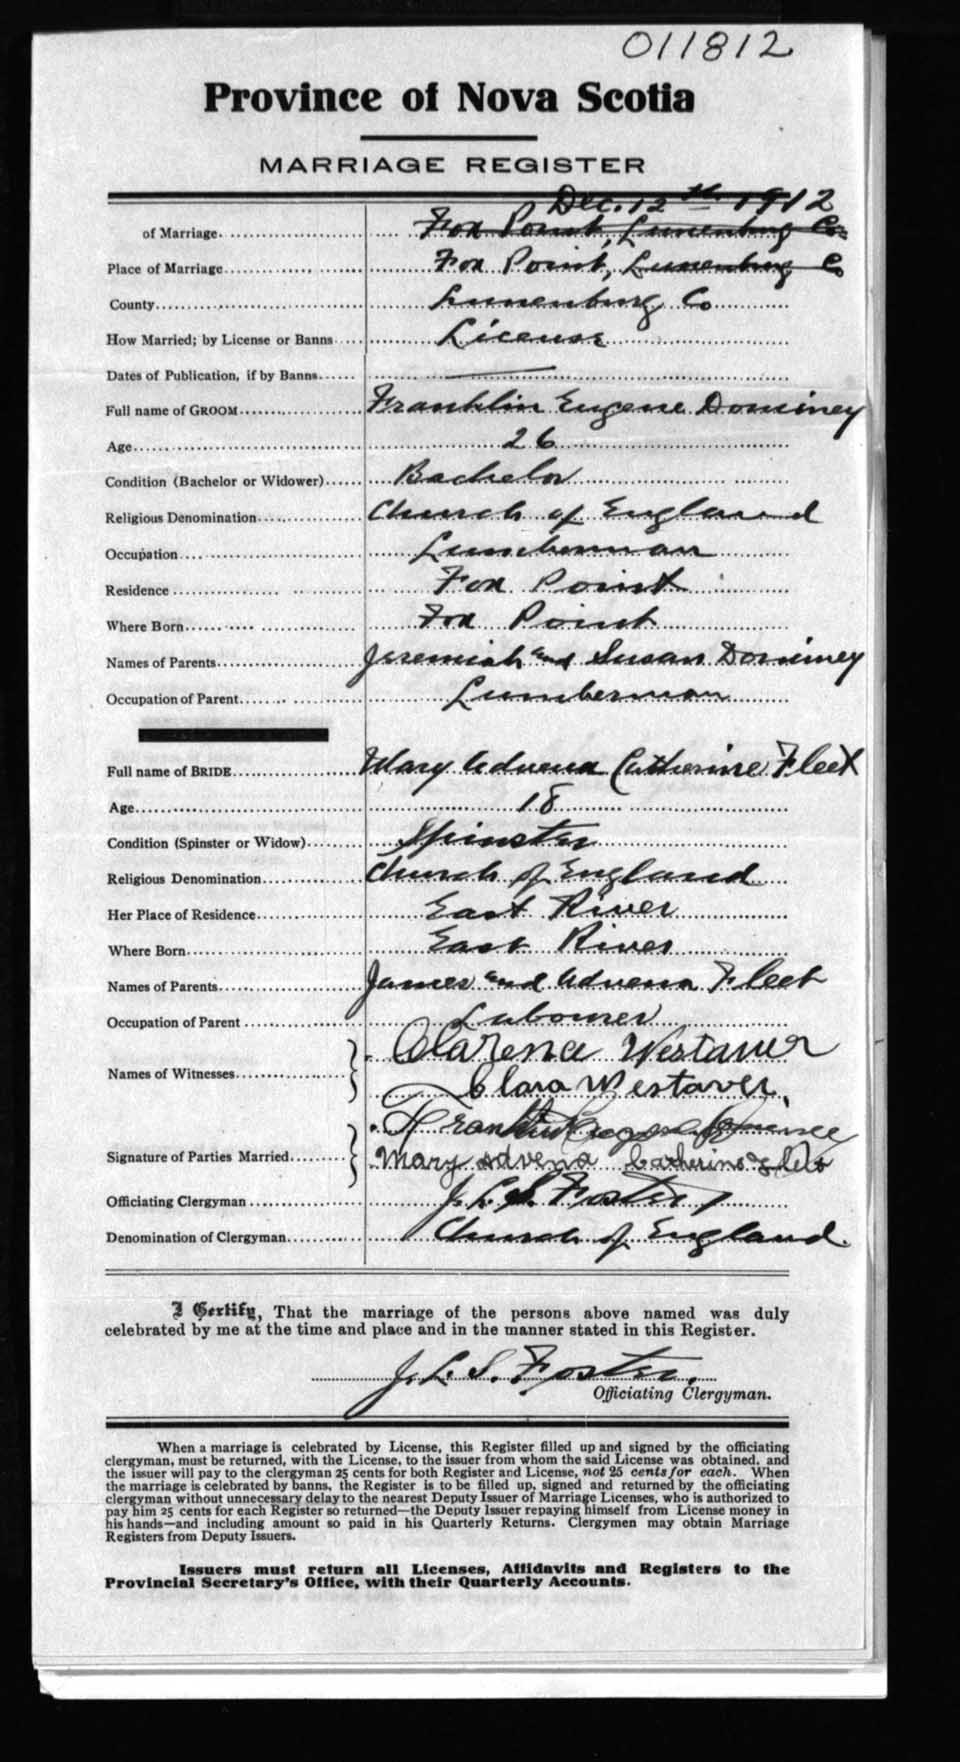 011812
Province of Nova Scotia
MARRIAGE REGISTER
Dec. 12th 1912
of Marriage Fox Point, Lunenburg Co.
Place of Marriage Fox Point, Lunenburg Co
County Lunenburg Co
How Married; by License or Banns License
Dates of Publication, if by Banns
Full name of GROOM Franklin Eugene Dominey
Age 26
Condition (Bachelor or Widower) Bachelor
Religious Denomination Church of England
Occupation Lumberman
Residence Fox Point
Where Born Fox Point
Names of Parents Jeremiah and Susan Dominey
Occupation of Parent Lumberman
Full name of BRIDE Mary Advena Catherine Fleet
Age 18
Condition (Spinster or Widow) Spinster
Religious Denomination Church of England
Her Place of Residence East River
Where Born East River
Names of Parents James and Advena Fleet
Occupation of Parent Labourer
Names of Witnesses Clarence Westaver
Clara Westaver
Franklin Eugene
Signature of Parties Married Mary Advena Catherine
Officiating Clergyman J. L. S. Foster
Denomination of Clergyman Church of England.
I Certify, That the marriage of the persons above named was duly
celebrated by me at the time and place and in the manner stated in this Register.
J. L. S. Foster.
Officiating Clergyman.
When a marriage is celebrated by License, this Register filled up and signed by the officiating
clergyman, must be returned, with the License, to the issuer from whom the said License was obtained, and
the issuer will pay to the clergyman 25 cents for both Register and License, not 25 cents for each. When
the marriage is celebrated by banns, the Register is to be filled up, signed and returned by the officiating
clergyman without unnecessary delay to the nearest Deputy Issuer of Marriage Licenses, who is authorized to
pay him 25 cents for each Register so returned—the Deputy Issuer repaying himself from License money in
his hands—and including amount so paid in his Quarterly Returns. Clergymen may obtain Marriage
Registers from Deputy Issuers.
Issuers must return all Licenses, Affidavits and Registers to the
Provincial Secretary's Office, with their Quarterly Accounts.